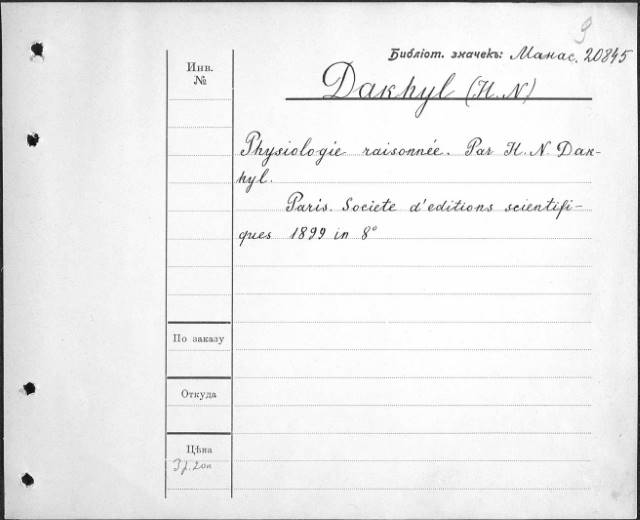 9
Библіот. значекъ: Манас. 20845
Инв.
№
Dakhyl (H. N)
Physiologie raisonnée. Par H. N. Dak-
hyl.
Paris. Societe d'editions scientifi-
ques 1899 in 8°
По заказу
Откуда
Цѣна